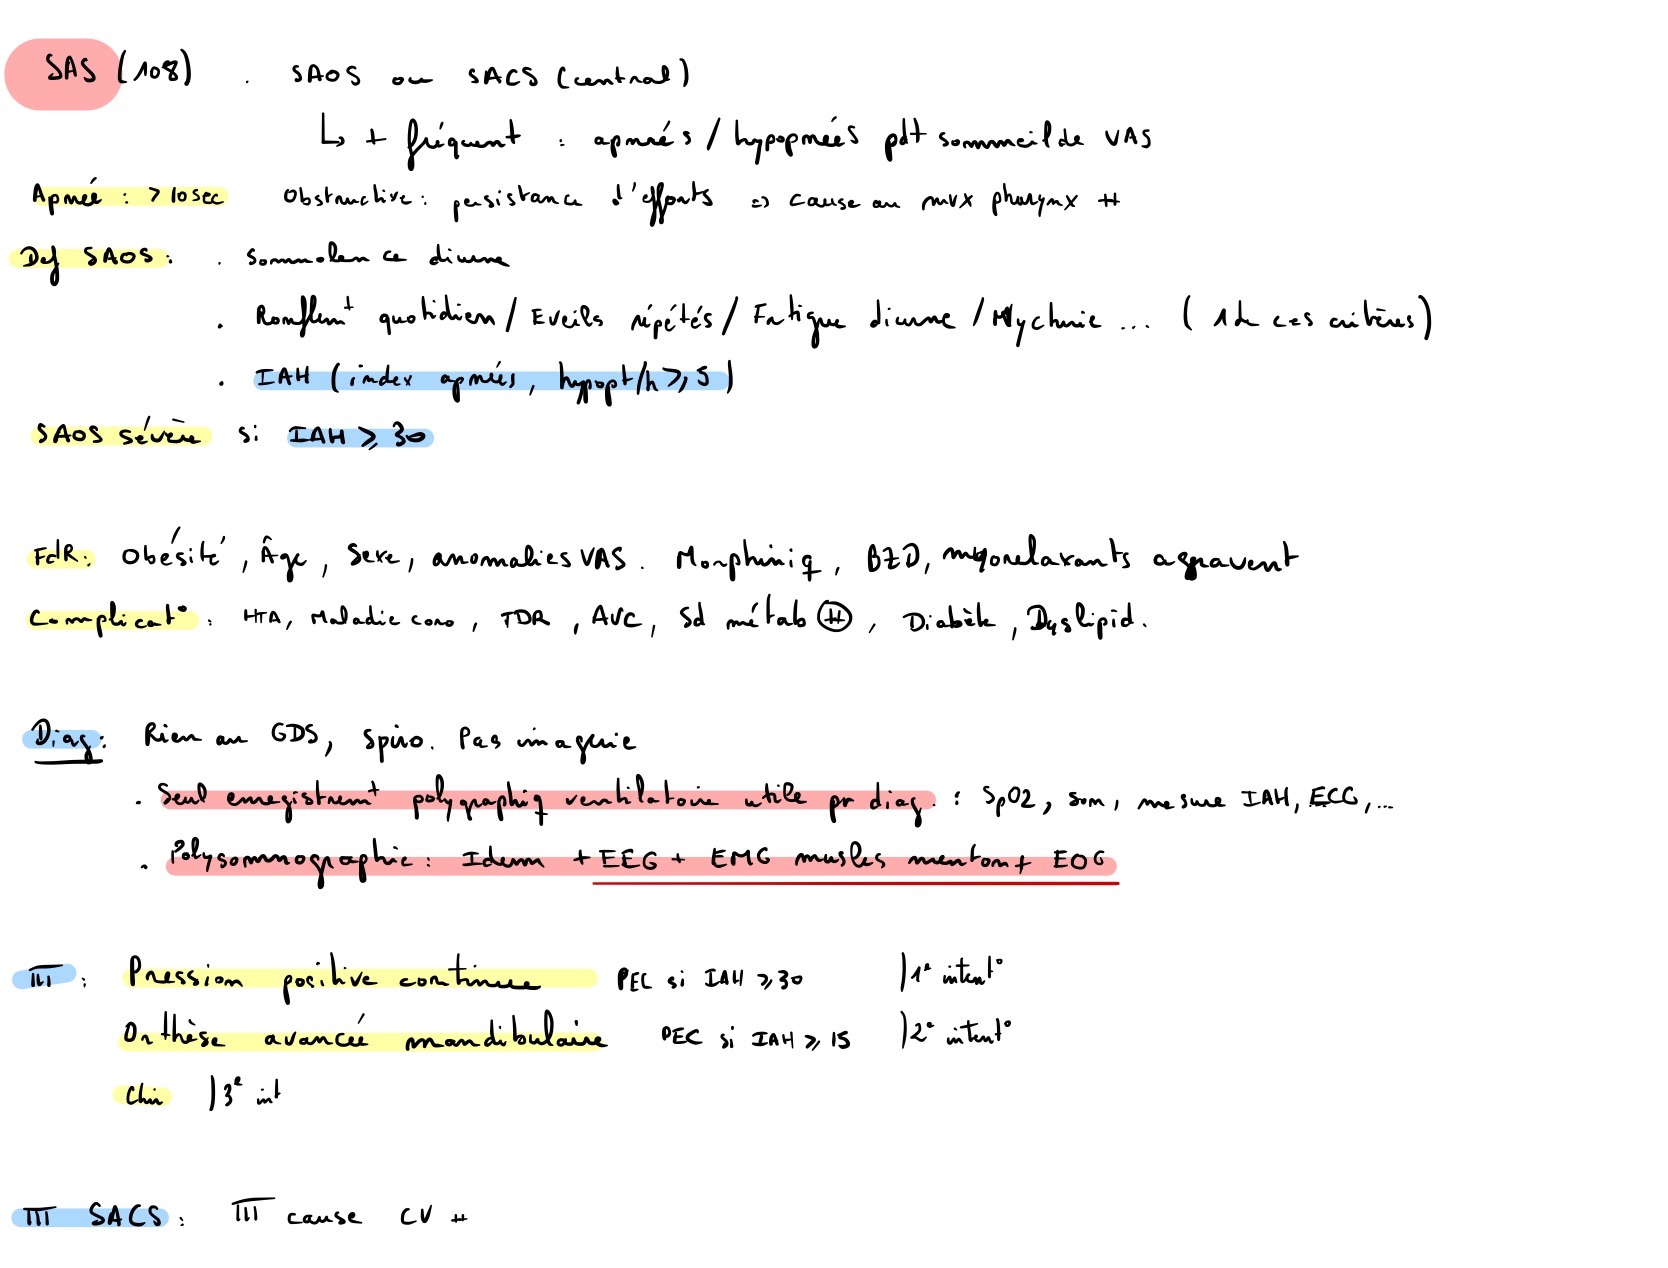 SAS (108) . SAOS ou SACS (central)
↳ + fréquent : apnées / hypopnées pdt sommeil de VAS
Apnée : > 10 sec Obstructive : persistance d'efforts => cause au nvx pharynx #
Def SAOS : . Somnolence diurne
. Ronflemt quotidien / Eveils répétés / Fatigue diurne / Nycturie ... ( 1 de ces critères)
. IAH ( index apnées, hypopt/h ≥ 5 )
SAOS sévère si IAH ≥ 30
FdR : Obésité, Âge, Sexe, anomalies VAS. Morphiniq, BZD, myorelaxants agravent
Complicat° : HTA, Maladie coro, TDR, AVC, Sd métab #, Diabète, Dyslipid.
Diag : Rien au GDS, spiro. Pas imagerie
. Seul enregistremt polygraphiq ventilatoire utile pr diag. : SpO2, son, mesure IAH, ECG, ...
. Polysomnographie : Idem + EEG + EMG muscles menton + EOG
TTT : Pression positive continue PEC si IAH ≥ 30 ) 1e intent°
Orthèse avancée mandibulaire PEC si IAH ≥ 15 ) 2e intent°
Chir ) 3e int
TTT SACS : TTT cause CV #